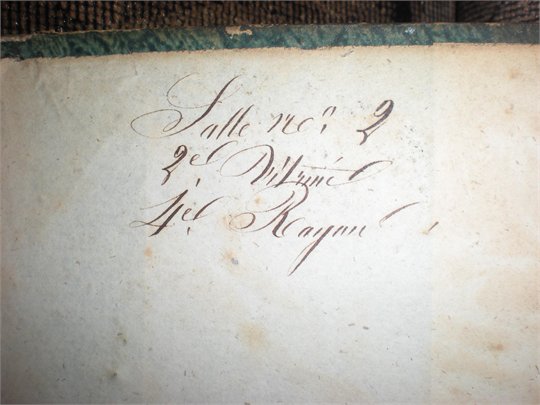 Salle no: 2
2el Vitrine
4el Rayon